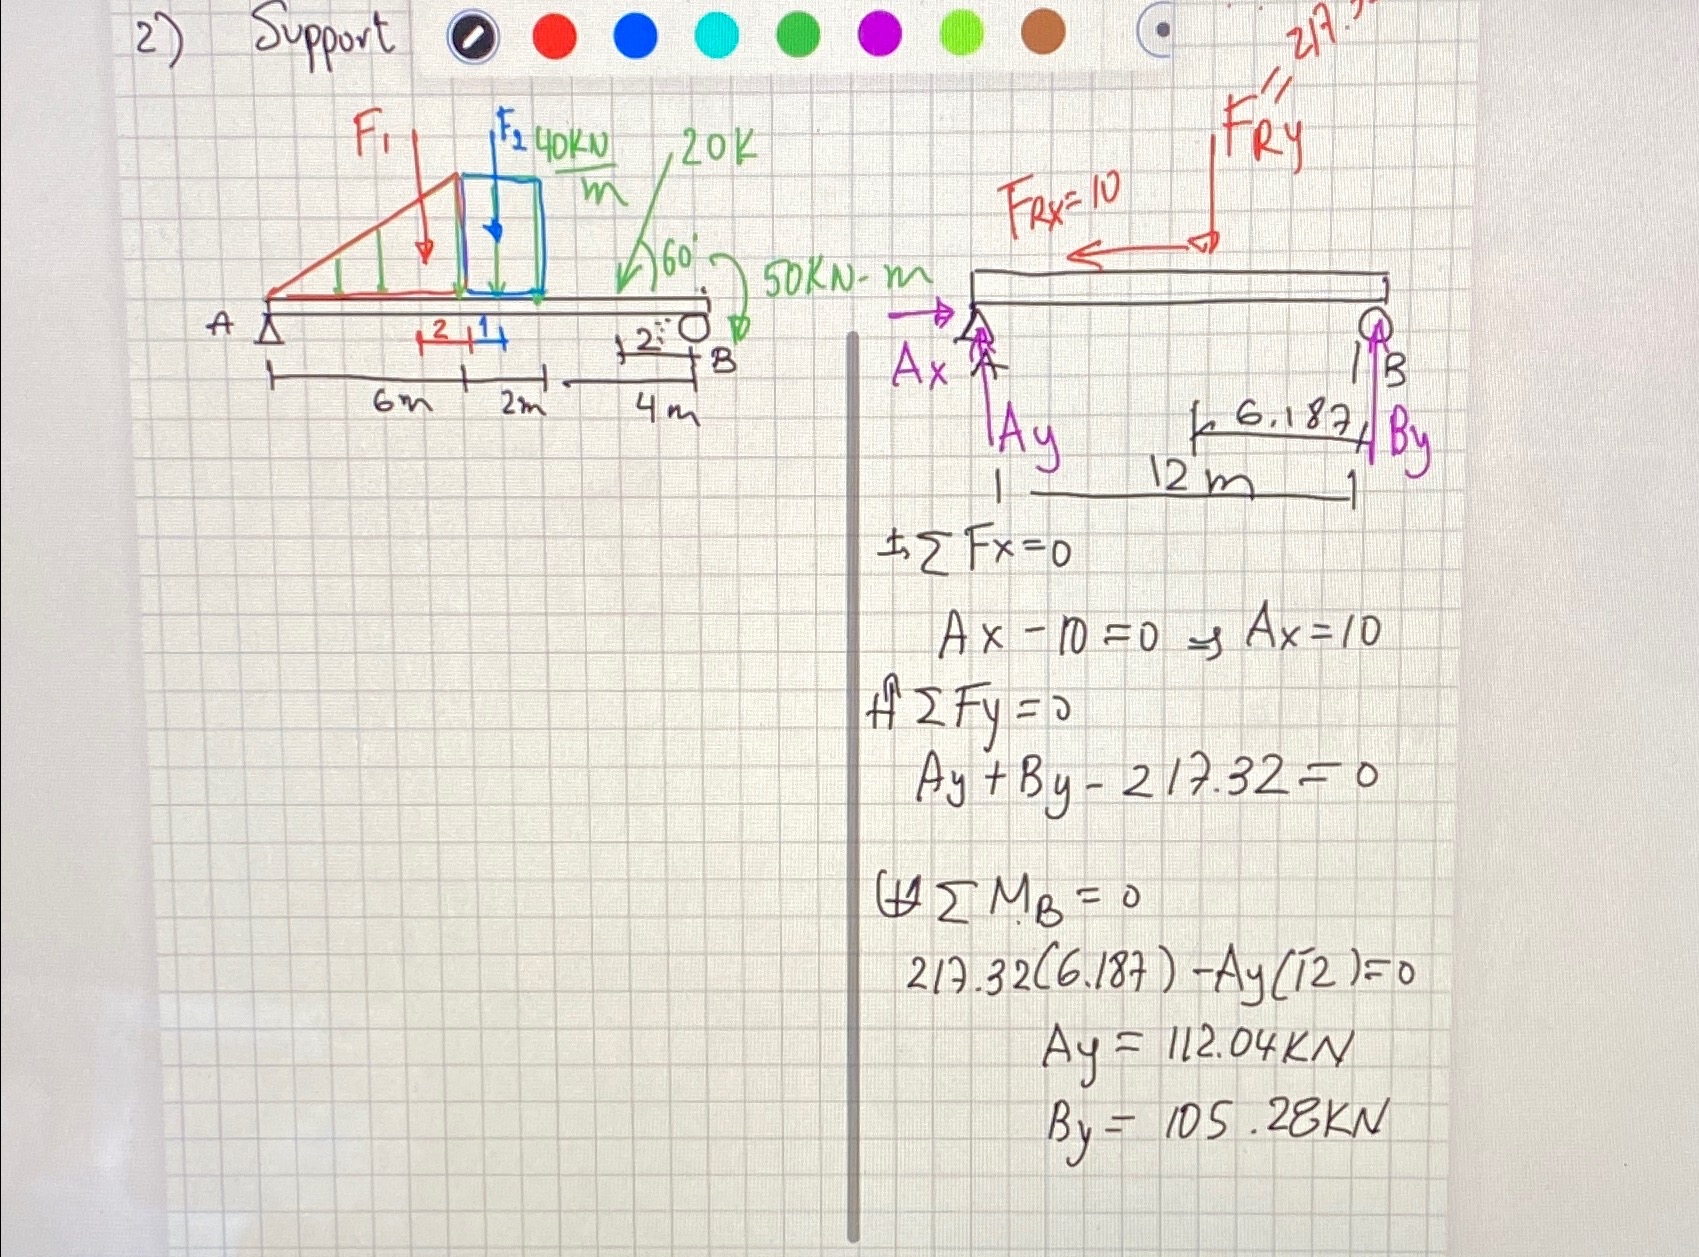 2) Support
F1
F2
40KN/m
20K
60°
50KN-m
A
2
1
2
B
6m
2m
4m
217.3
FRy
FRX=10
Ax
A
Ay
B
By
6.187
12 m
+→ ΣFx=0
Ax-10=0 ⇒ Ax=10
+↑ ΣFy=0
Ay+By-217.32=0
↶+ ΣMB=0
217.32(6.187)-Ay(12)=0
Ay=112.04KN
By=105.28KN